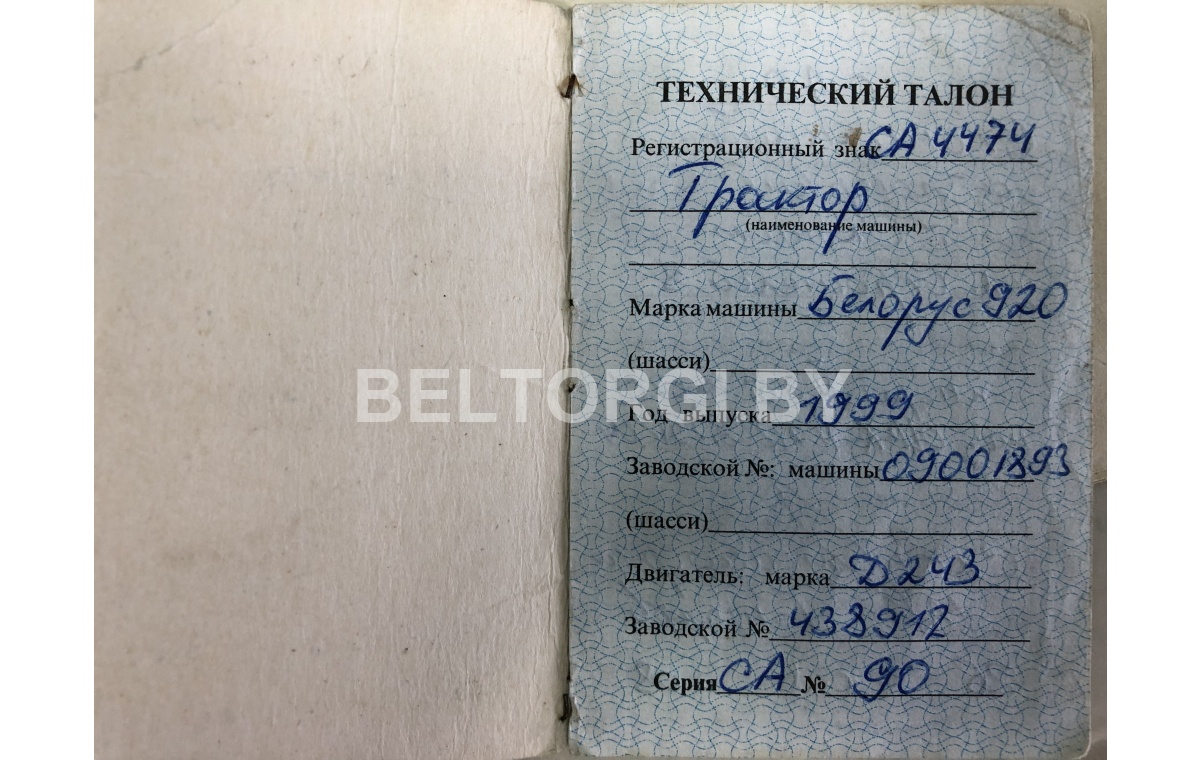 ТЕХНИЧЕСКИЙ ТАЛОН
Регистрационный знак СА 4474
Трактор
(наименование машины)
Марка машины Белорус 920
(шасси)
BELTORGI BY
Год выпуска 1999
Заводской №: машины 09001893
(шасси)
Двигатель: марка Д243
Заводской № 438912
Серия СА № 90